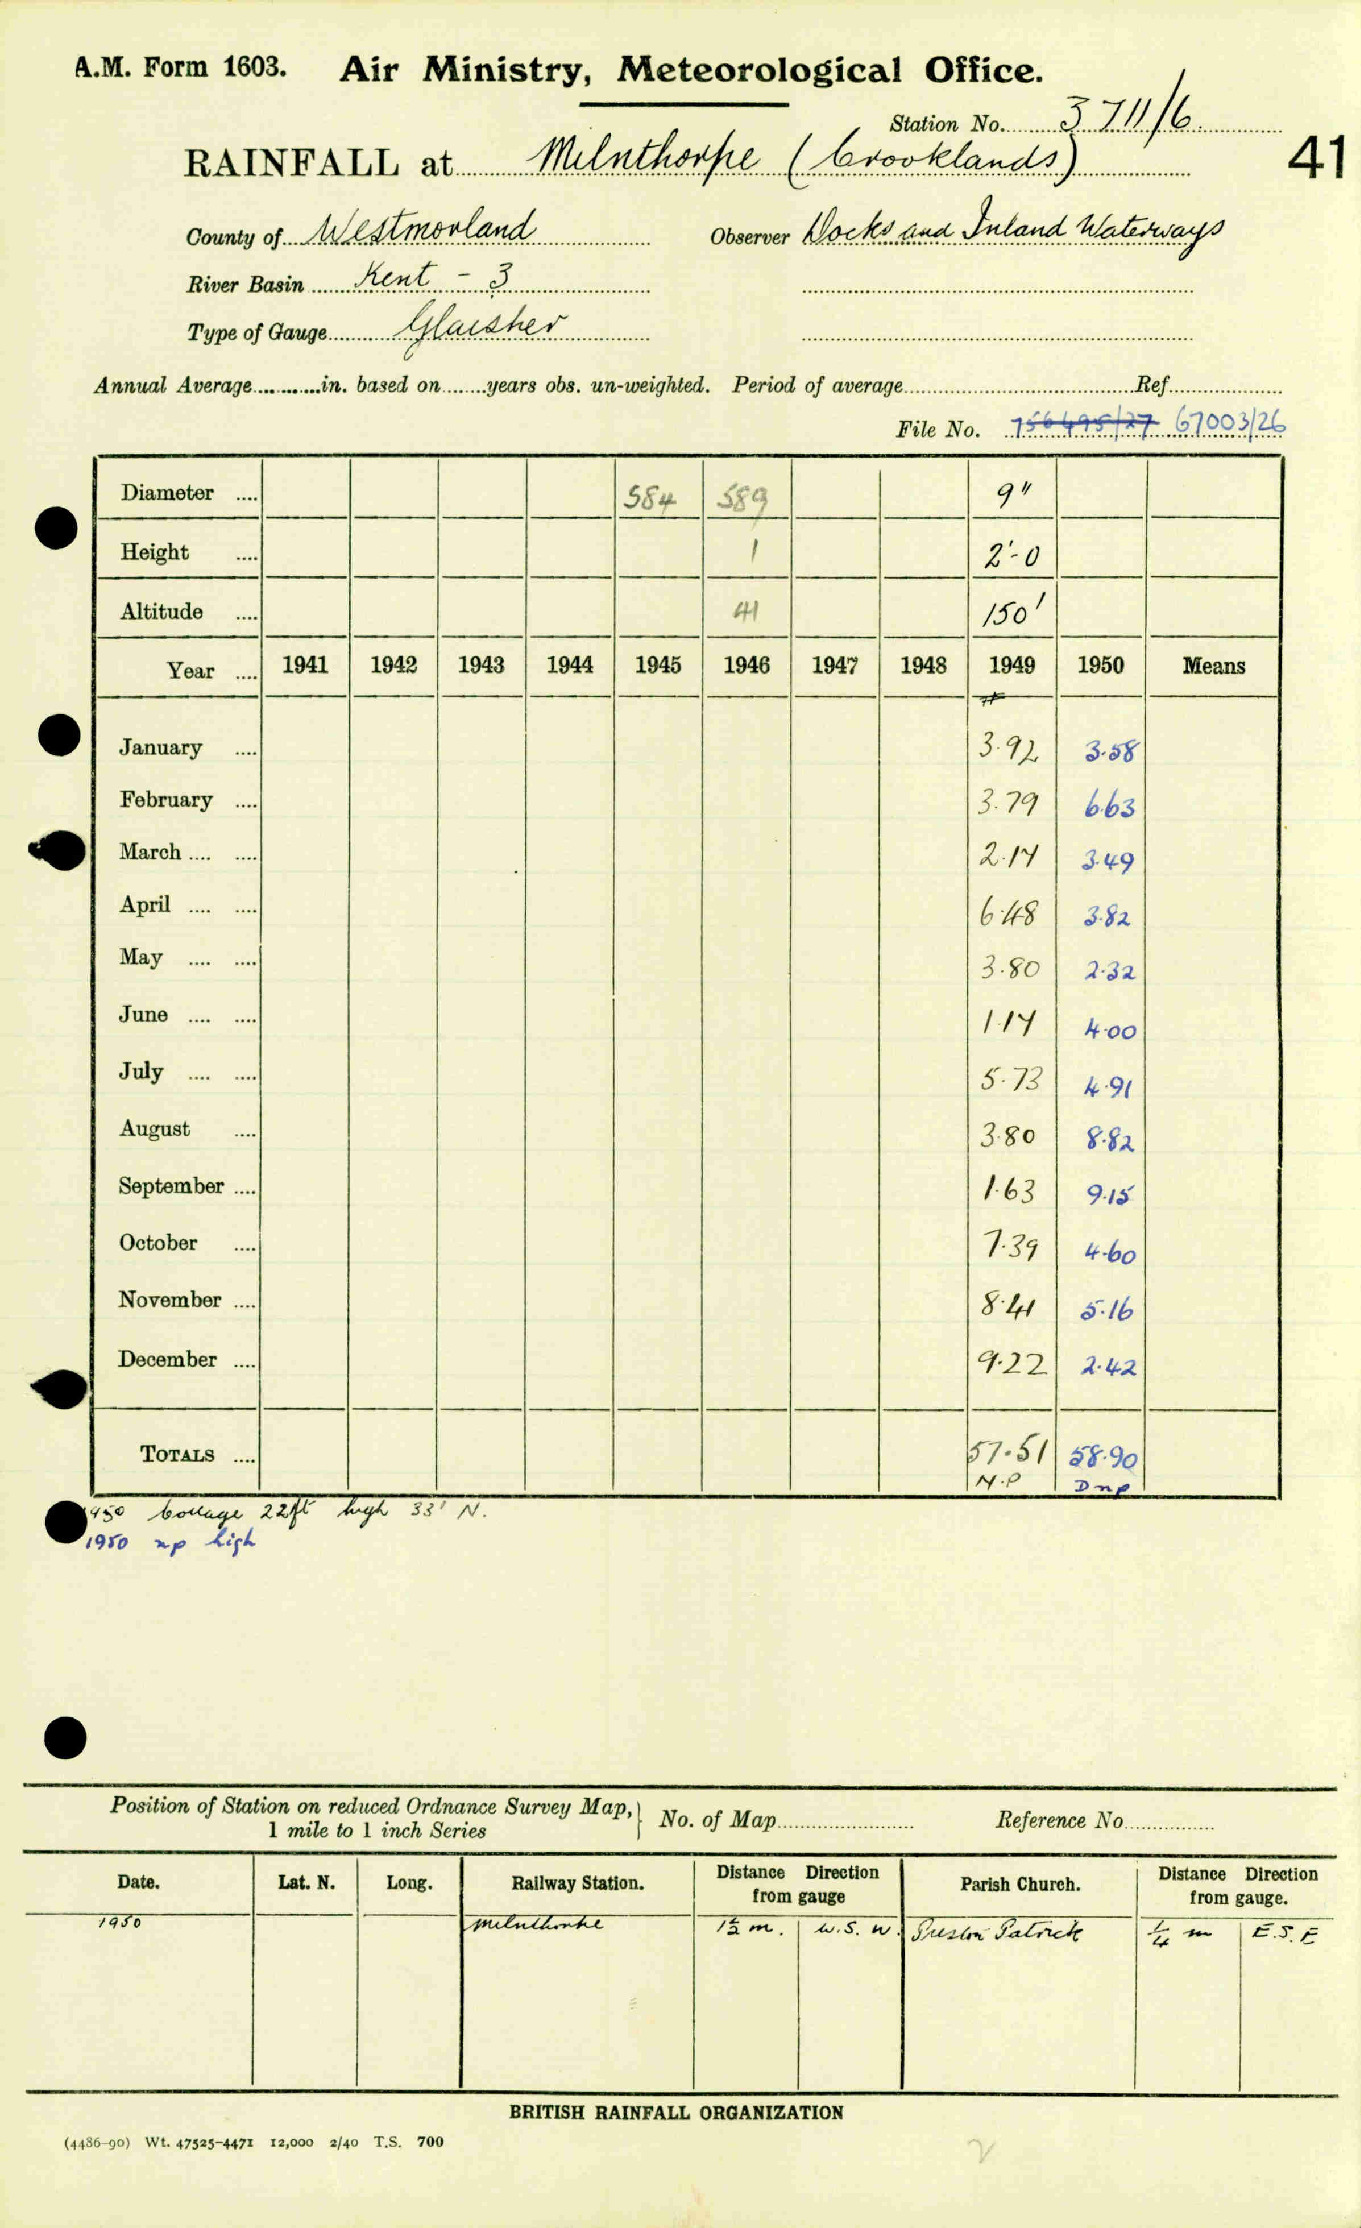 A.M. Form 1603. Air Ministry, Meteorological Office.
Station No. 3711/6
RAINFALL at Milnthorpe (Crooklands) 41
County of Westmorland Observer Docks and Inland Waterways
River Basin Kent - 3
Type of Gauge Glaisher
Annual Average............in. based on........years obs. un-weighted. Period of average........Ref........
File No. 756495/27 67003/26
Diameter .... 584 589 9"
Height .... 1 2'-0
Altitude .... 41 150'
Year .... 1941 1942 1943 1944 1945 1946 1947 1948 1949 1950 Means
January .... 3.92 3.58
February .... 3.79 6.63
March .... .... 2.17 3.49
April .... .... 6.48 3.82
May .... .... 3.80 2.32
June .... .... 1.17 4.00
July .... .... 5.73 4.91
August .... 3.80 8.82
September .... 1.63 9.15
October .... 7.39 4.60
November .... 8.41 5.16
December .... 9.22 2.42
TOTALS .... 57.51 58.90
N.P Dnp
1950 Cottage 22ft high 33' N.
1950 np high
Position of Station on reduced Ordnance Survey Map, 1 mile to 1 inch Series } No. of Map........ Reference No........
Date. Lat. N. Long. Railway Station. Distance from gauge Direction Parish Church. Distance Direction from gauge.
1950 Milnthorpe 1½ m. W.S.W. Preston Patrick ¼ m E.S.E
BRITISH RAINFALL ORGANIZATION
(4486-90) Wt. 47525-4471 12,000 2/40 T.S. 700
2